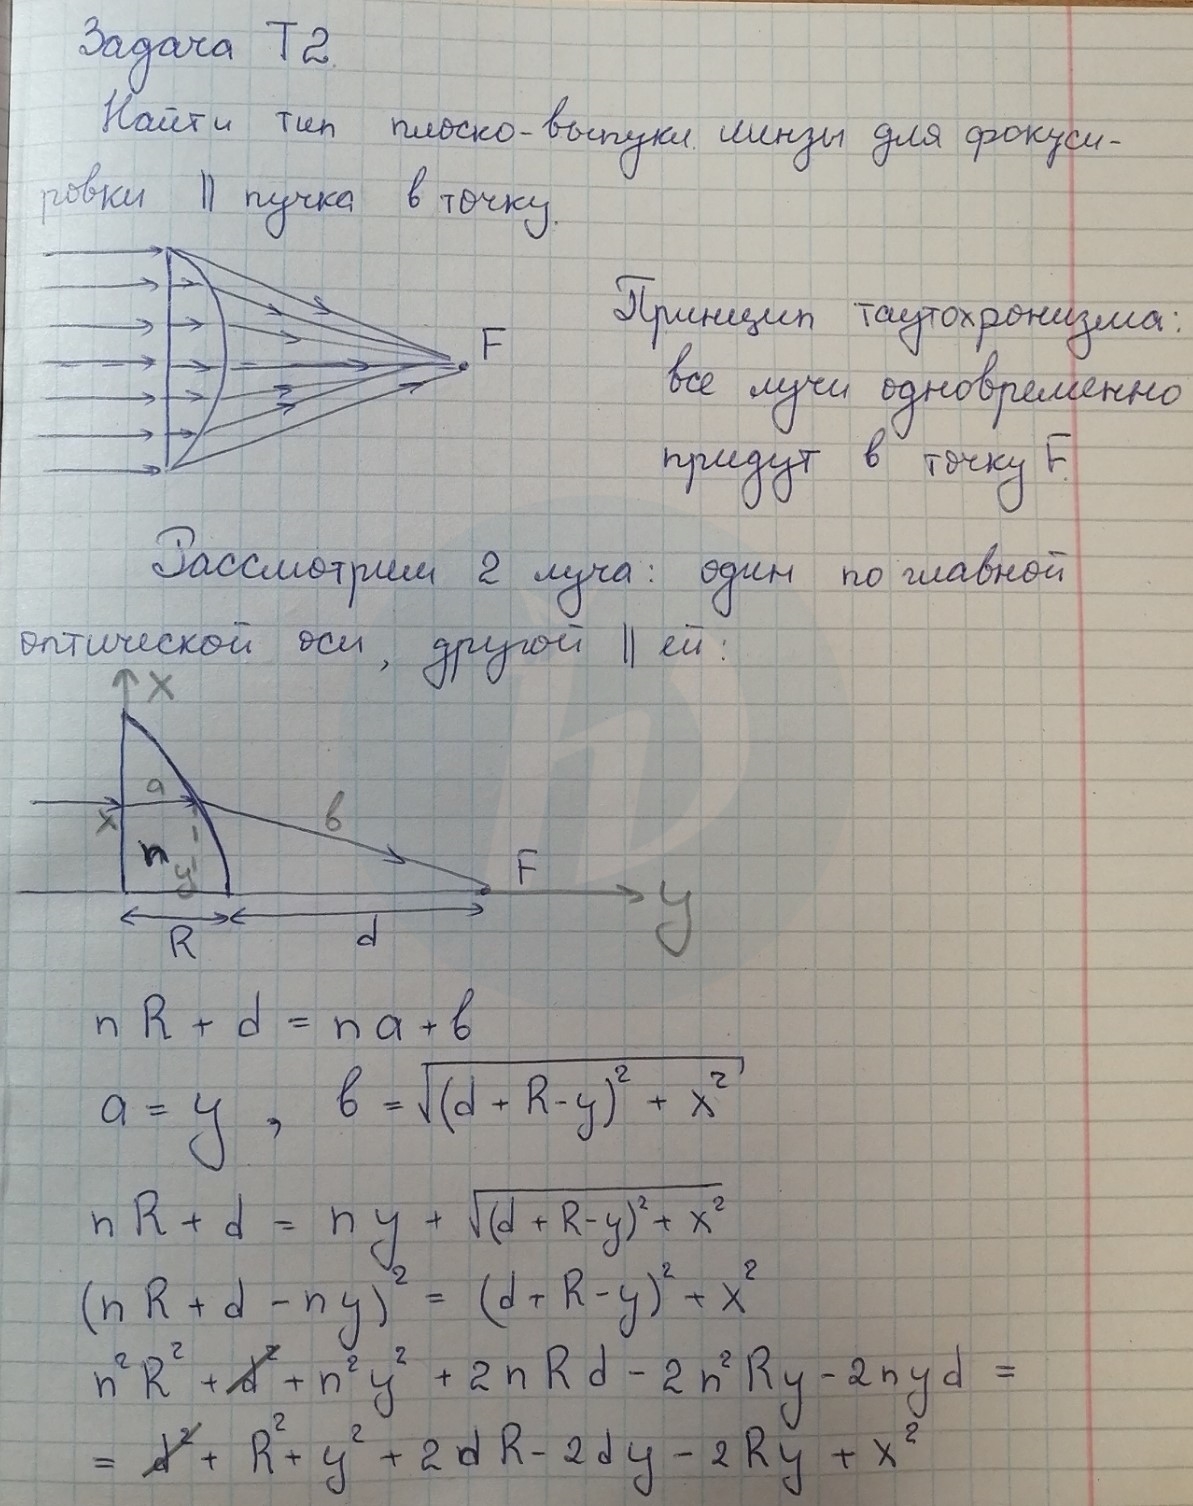 Задача Т2.
Найти тип плоско-выпукл. линзы для фокуси-
ровки || пучка в точку.
F
Принцип таутохронизма:
все лучи одновременно
придут в точку F.
Рассмотрим 2 луча: один по главной
оптической оси, другой || ей:
x
a
x
b
n
y
F
y
R
d
nR + d = na + b
a = y , b = √((d + R - y)² + x²)
nR + d = ny + √((d + R - y)² + x²)
(nR + d - ny)² = (d + R - y)² + x²
n²R² + d² + n²y² + 2nRd - 2n²Ry - 2nyd =
= d² + R² + y² + 2dR - 2dy - 2Ry + x²